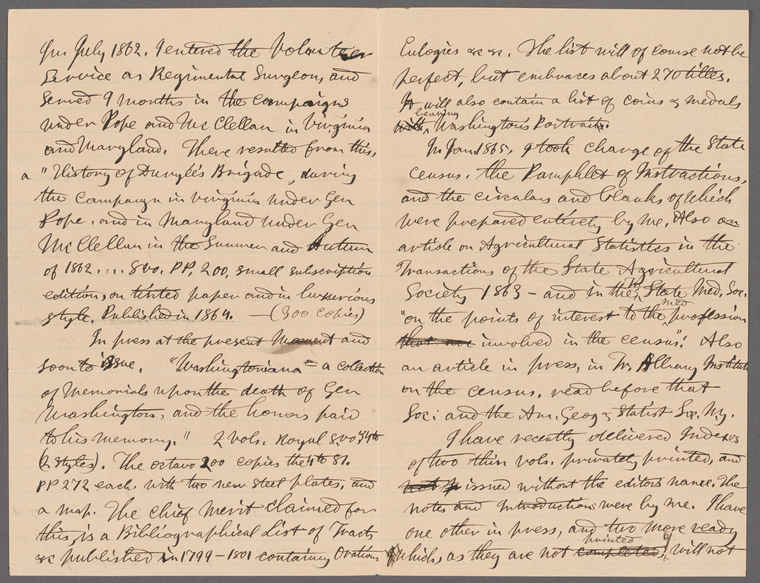 In July 1862. I entered the Volunteer
Service as Regimental Surgeon, and
served 9 months in the campaigns
under Pope and McClellan in Virginia
and Maryland. There resulted from this,
a "History of Duryée's Brigade, during
the campaign in Virginia under Gen
Pope. and in Maryland under Gen
McClellan in the Summer and Autumn
of 1862.... 8vo. PP. 200, small subscription
edition, on tinted paper and in luxurious
style. Published in 1864. — (300 copies)
In press at the present Moment and
soon to issue. "Washingtoniana = a collection
of Memorials upon the death of Gen
Washington, and the honors paid
to his memory." 2 vols. Royal 8vo & 4to
(2 styles). The octavo 200 copies the 4to 81.
PP 272 each. with two new Steel plates, and
a map. The chief merit claimed for
this, is a Bibliographical List of Tracts
&c published in 1799-1801 containing Orations
Eulogies &c &c. The list will of course not be
perfect, but embraces about 270 titles.
It will also contain a list of coins & medals
with bearing Washington's Portraits.
In Jan 1865, I took charge of the State
Census. the Pamphlet of Instructions,
and the circulars and blanks of which
were prepared entirely by me. Also an
article on Agricultural Statistics in the
Transactions of the State Agricultural
Society 1863 - and in the State Med. Soc.
"on the points of interest to the med profession
that are involved in the census". Also
an article in press, in Tr. Albany Institute
on the census. read before that
Soc: and the Am. Geog & Statist Soc. N.Y.
I have recently delivered Indexes
of two thin vols. privately printed, and
issued without the editors name. The
notes and introductions were by me. I have
one other in press, and two more ready
which, as they are not completed, printed I will not